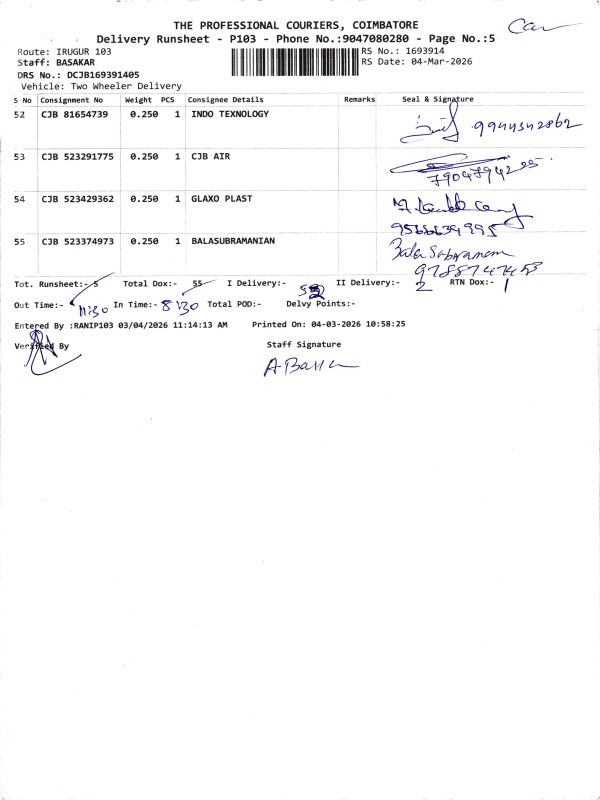 THE PROFESSIONAL COURIERS, COIMBATORE
Delivery Runsheet - P103 - Phone No.:9047080280 - Page No.:5
Route: IRUGUR 103
RS No.: 1693914
Staff: BASAKAR
RS Date: 04-Mar-2026
DRS No.: DCJB169391405
Vehicle: Two Wheeler Delivery
S No Consignment No Weight PCS Consignee Details Remarks Seal & Signature
52 CJB 81654739 0.250 1 INDO TEXNOLOGY 9944542862
53 CJB 523291775 0.250 1 CJB AIR
54 CJB 523429362 0.250 1 GLAXO PLAST
9566639995
55 CJB 523374973 0.250 1 BALASUBRAMANIAN Bala Subramani
9788747453
Tot. Runsheet:- 5 Total Dox:- 55 I Delivery:- II Delivery:- 2 RTN Dox:- 1
Out Time:- 11:30 In Time:- 8:30 Total POD:- Delvy Points:-
Entered By :RANIP103 03/04/2026 11:14:13 AM Printed On: 04-03-2026 10:58:25
Verified By Staff Signature